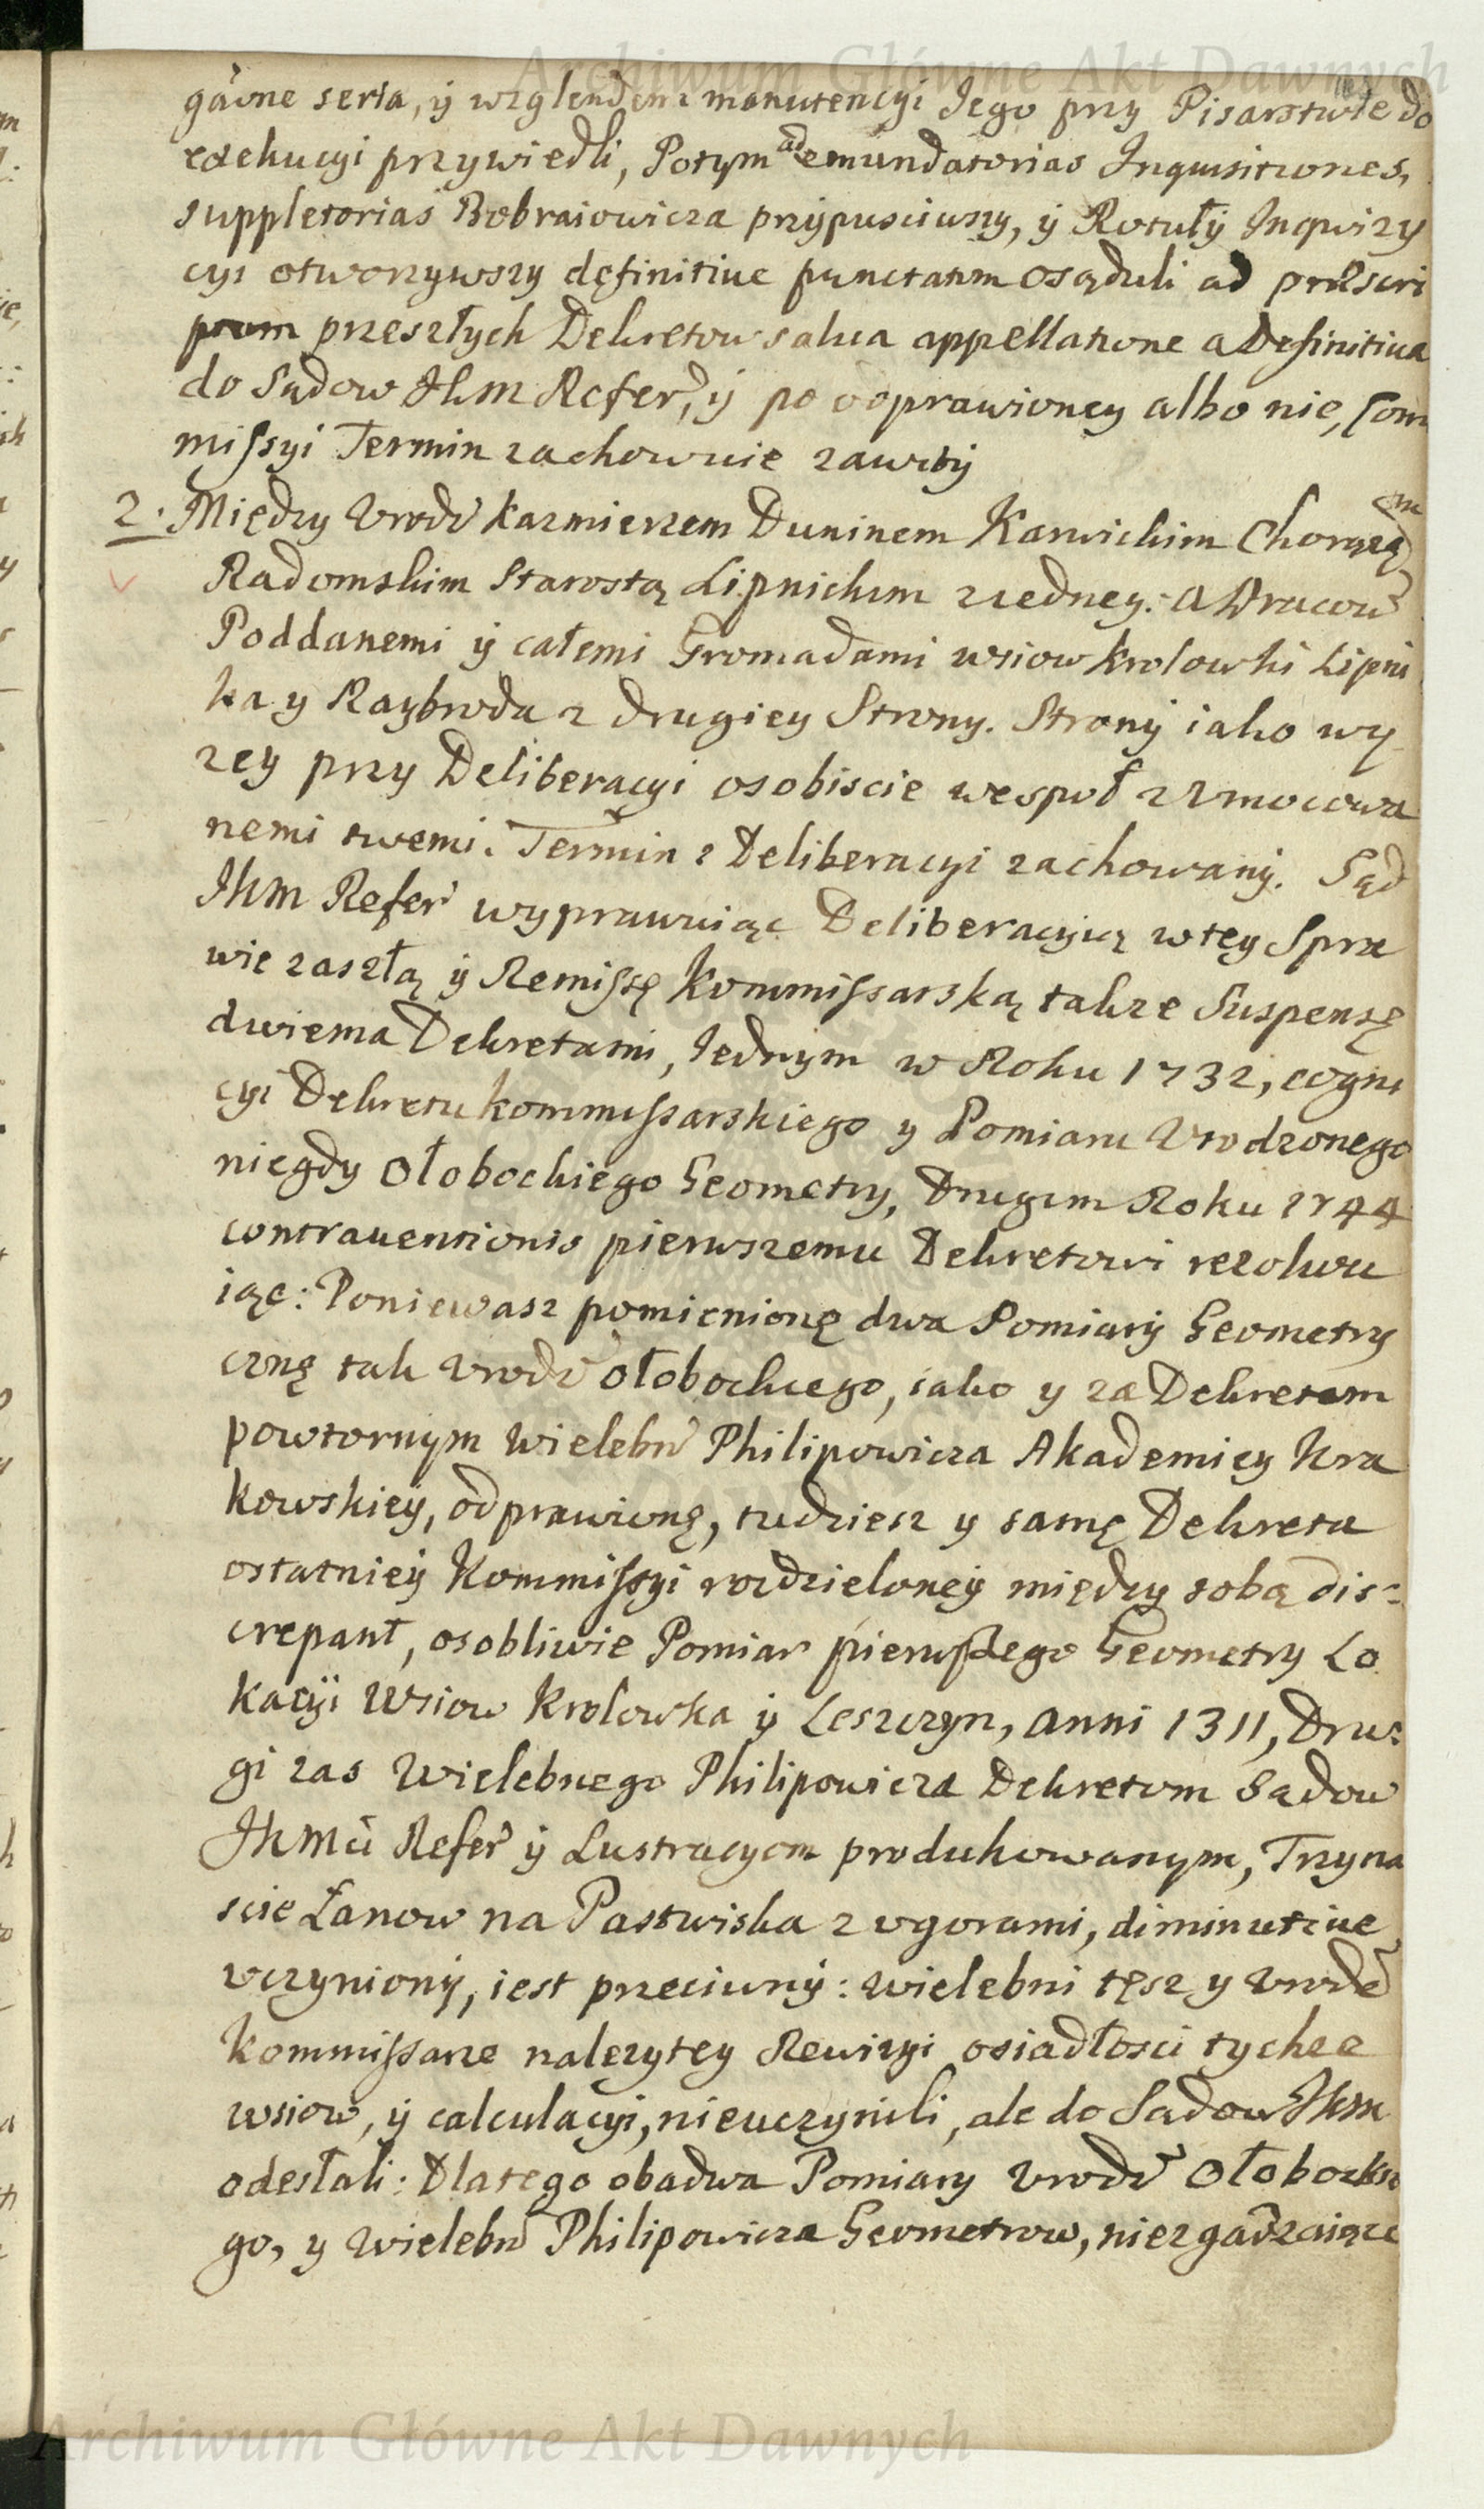 Archiwum Główne Akt Dawnych
gäwne seria, ÿ wzglendem manutencyi Jego przy Pisarstwie do
exekucyi przywiedli, Potym ad emundatorias Inquisitiones,
suppletorias Bobraiowicza przypusciwszy, ÿ Rotuły Inqwizy
cyi otworzywszy definitive punctatim osąduli ad præscri
ptum przeszłych Dekretow salva appellatione a Definitiva
do Sądow JKM Refer, ÿ po odprawioney albo nie, Com
missyi Termin zachowuie zawitÿ
2. Między Urodź Kazmierzem Duninem Karwickim Chorążęm
Radomskim Starostą Lipnickim z iedney: a Pracow
Poddanemi ÿ całemi Gromadami wsiow Krolowki Lipni
ka y Raybroda z drugiey Strony. Stronÿ iako wy
zey przy Deliberacyi osobiscie wespoł z Umocowa
nemi swemi. Termin z Deliberacyi zachowanÿ. Sąd
JKM Refer wyprawuiąc Deliberacyią w tey Spra
wie zaszłą ÿ Remissę Kommissarską takze Suspensę
dwiema Dekretami, Jednym w Roku 1732, cogni
cyi Dekretu kommissarskiego y Pomiaru Urodzonego
niegdy Ołobockiego Geometry, Drugim Roku 1744
contraventionis pierwszemu Dekretowi rezolwu
iąc: Poniewasz pomienionę dwa Pomiarÿ Geometry
cznę tak Urodź Ołobockiego, iako y za Dekretem
powtornym Wielebń Philipowicza Akademiey Kra
kowskieÿ, odprawionę, tudziesz y samę Dekreta
ostatnieÿ Kommissyi rozdzieloneÿ między sobą dis-
crepant, osobliwie Pomiar pierwszego Geometry Lo
kacÿi Wsiow Krolowka ÿ Leszczyn, anni 1311, Dru-
gi zas Wielebnego Philipowicza Dekretom Sądow
JKMci Refer ÿ Lustracyom produkowanym, Trzyna
scie Łanow na Pastwiska z ugorami, diminutive
uczynionÿ, iest przeciwnÿ: Wielebni tęsz y Urodź
Kommissarze nalezytey Rewizyi osiadłosci tychze
wsiow, ÿ calculacyi, nieuczynili, ale do Sądow JKM
odesłali: Dlatego obadwa Pomiary Urodź Ołobockie
go, y Wielebń Philipowicza Geometrow, niezgadzaiące
Archiwum Główne Akt Dawnych